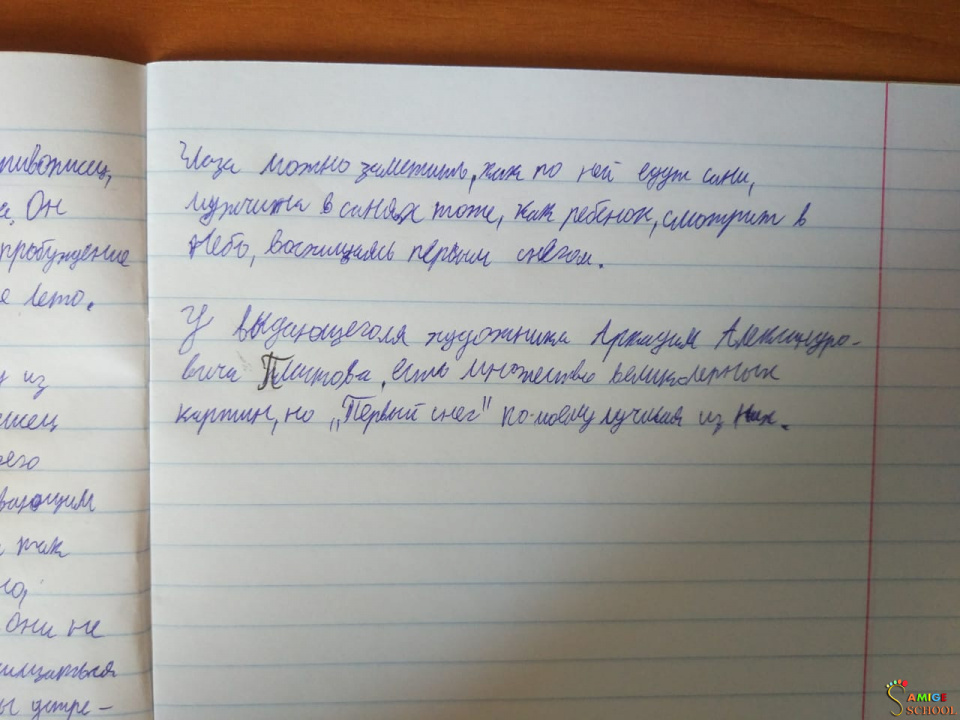 живописец,
Он
пробуждение
е лето.
из
его
вающим
так
Они не
ы устре-
Глаза можно заметить, как по ней едут сани,
мужчина в санях тоже, как ребенок, смотрит в
небо, восхищаясь первым снегом.
У выдающегося художника Аркадия Александро-
вича Пластова, есть множество великолепных
картин, но „Первый снег" по-моему лучшая из них.
SAMIGE
SCHOOL